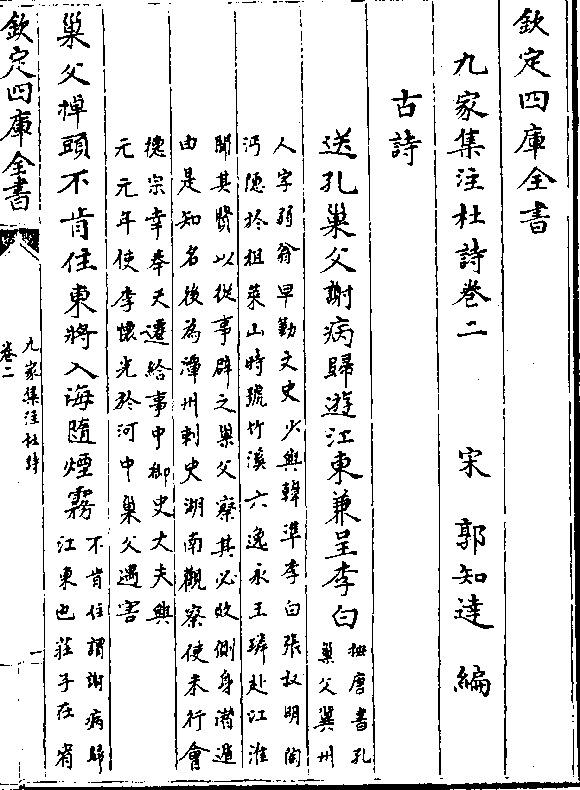 欽定四庫全書
九家集注杜詩卷二 宋 郭知達 編
古詩
送孔巢父謝病歸遊江東兼呈李白
按唐書孔
巢父冀州
人字弱翁早勤文史少與韓準李白張叔明陶
沔隱於徂萊山時號竹溪六逸永王璘赴江淮
聞其賢以從事辟之巢父察其必敗側身潛遁
由是知名後為潭州刺史湖南觀察使未行會
德宗幸奉天遷給事中御史大夫興
元元年使李懷光於河中巢父遇害
巢父掉頭不肯住東將入海隨煙霧
不肯住謂謝病歸
江東也莊子在宥
欽定四庫全書
九家集注杜詩
卷二